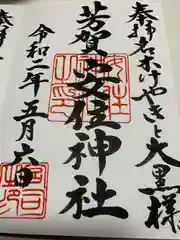 奉拝名木けやきと大黒様
芳賀安住神社
令和二年五月六日
奉拝